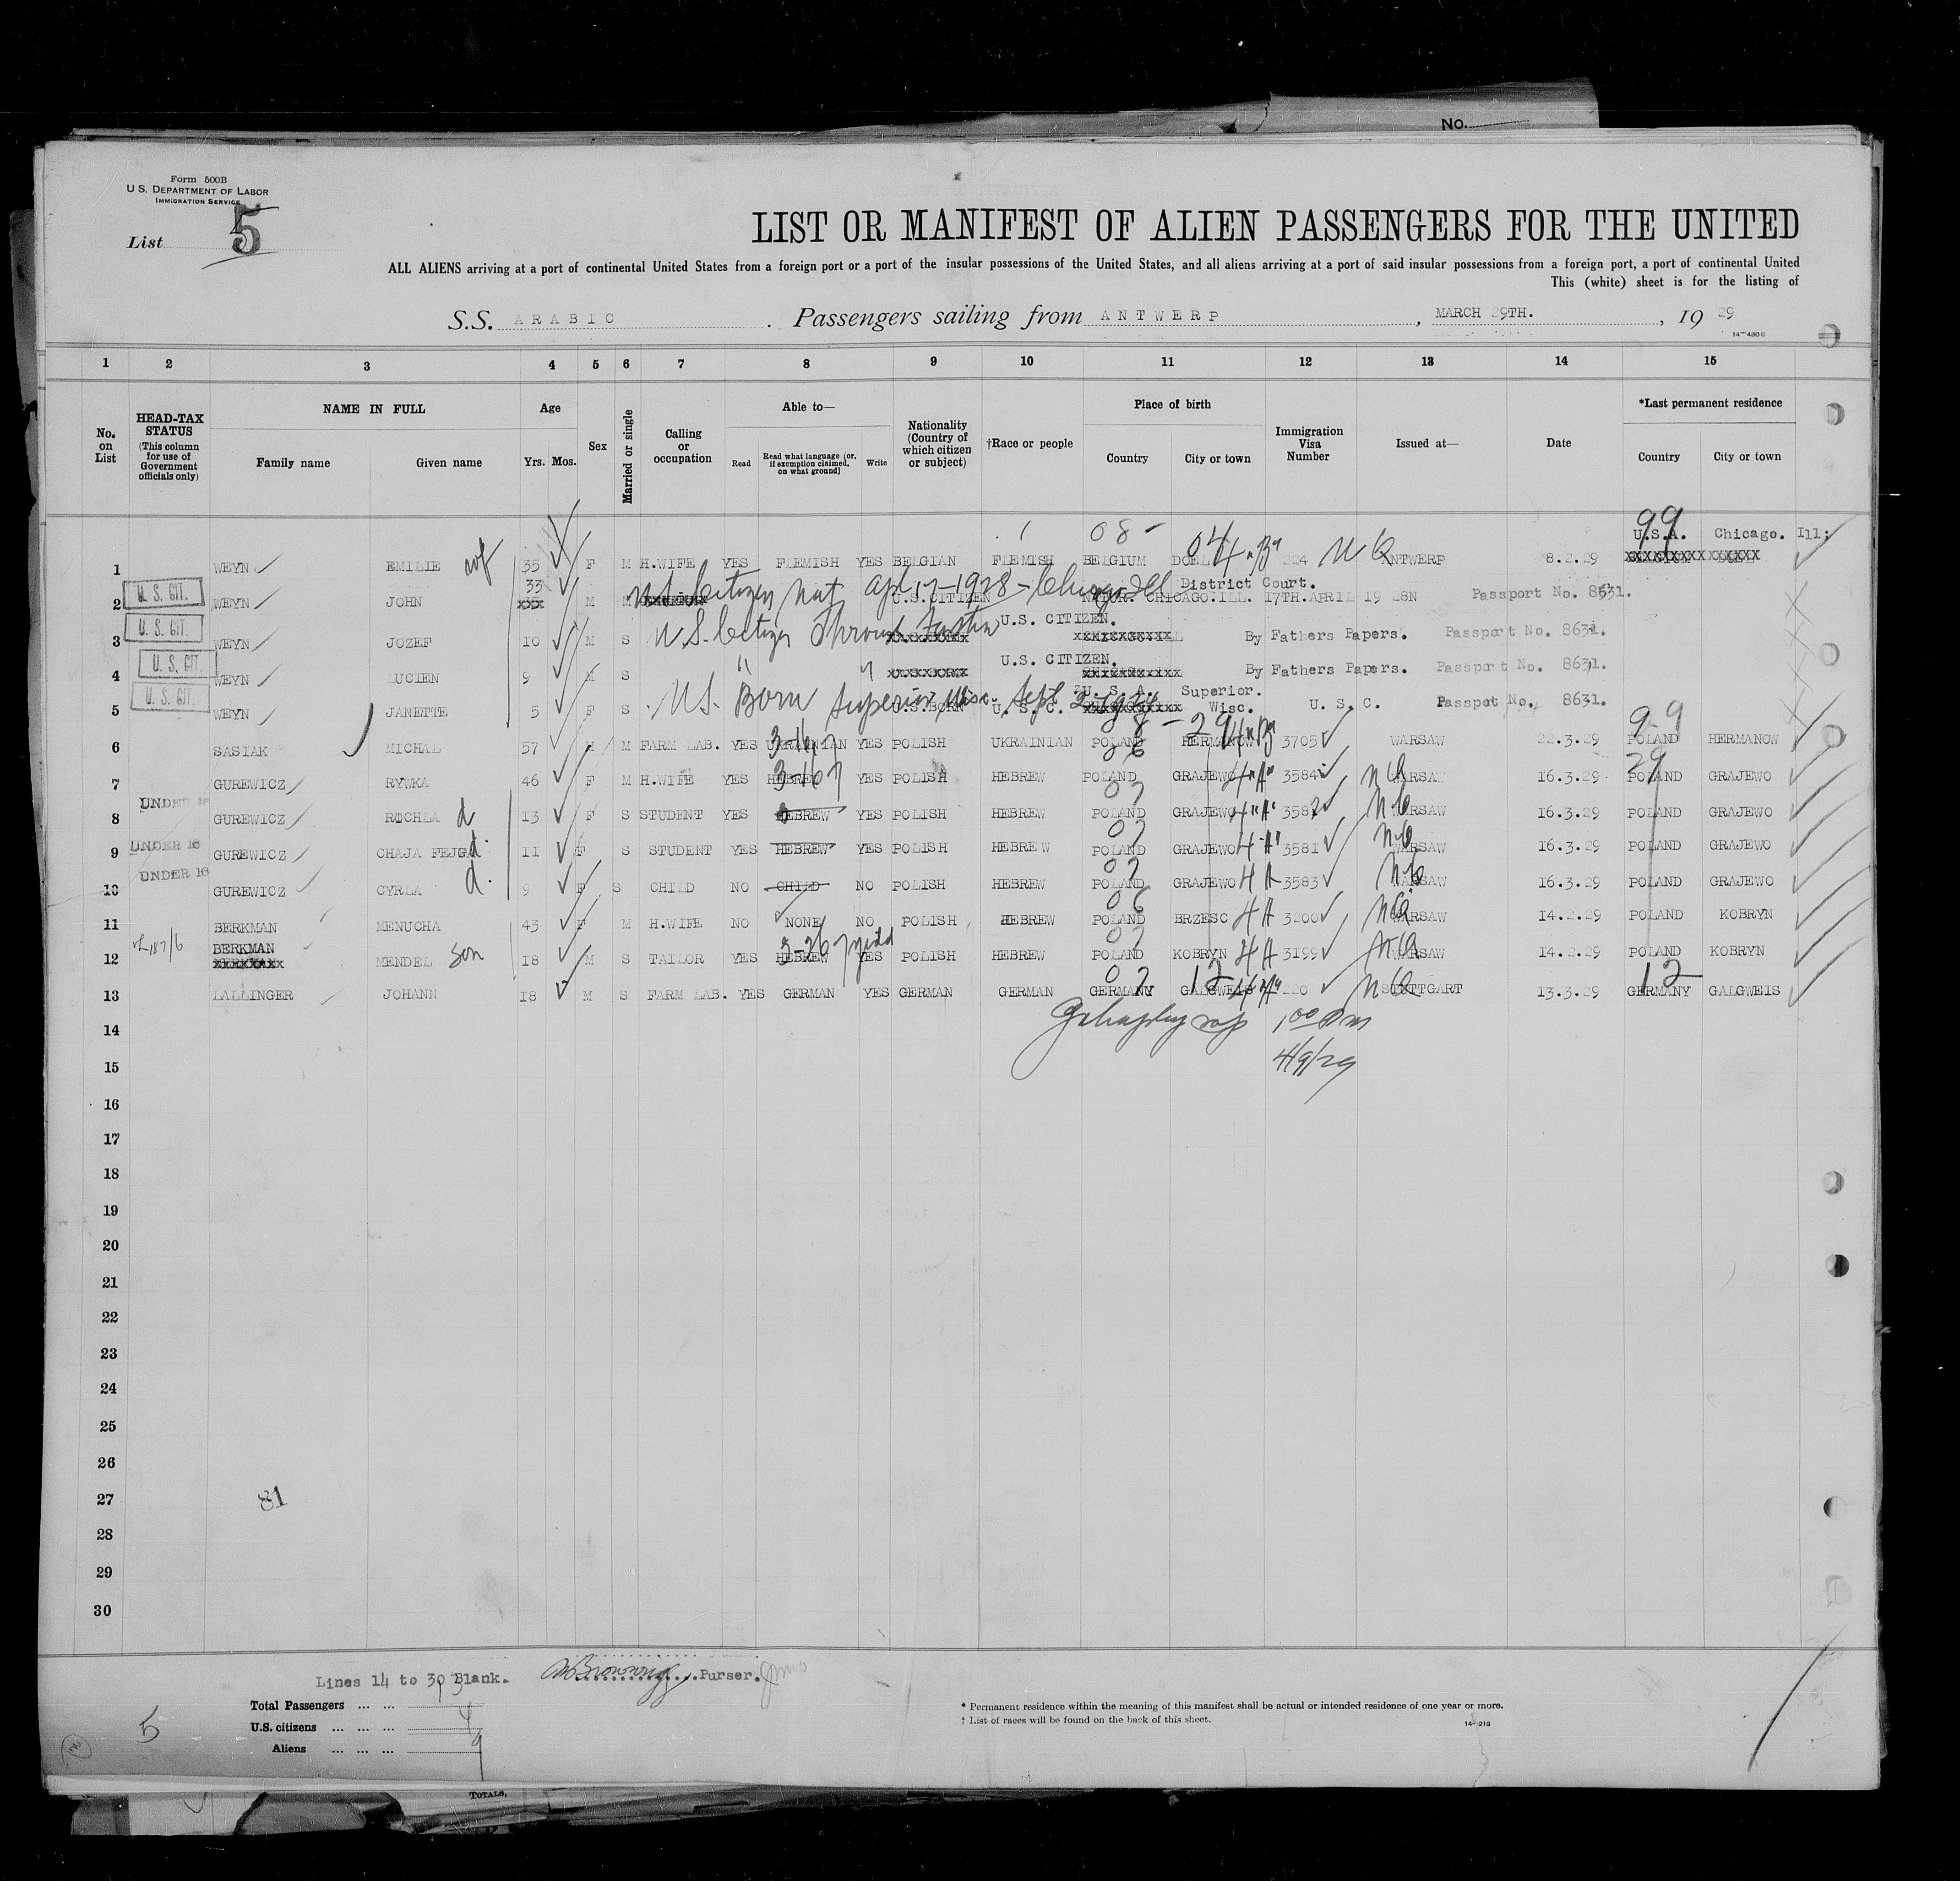 No.
Form 500B
U. S. DEPARTMENT OF LABOR
IMMIGRATION SERVICE
List 5
LIST OR MANIFEST OF ALIEN PASSENGERS FOR THE UNITED
ALL ALIENS arriving at a port of continental United States from a foreign port or a port of the insular possessions of the United States, and all aliens arriving at a port of said insular possessions from a foreign port, a port of continental United
This (white) sheet is for the listing of
S.S. ARABIC . Passengers sailing from ANTWERP , MARCH 29TH. , 19 29
14—430 B
1 2 3 4 5 6 7 8 9 10 11 12 13 14 15
No. on List HEAD-TAX STATUS (This column for use of Government officials only) NAME IN FULL Family name Given name Age Yrs. Mos. Sex Married or single Calling or occupation Able to— Read Read what language (or, if exemption claimed, on what ground) Write Nationality (Country of which citizen or subject) †Race or people Place of birth Country City or town Immigration Visa Number Issued at— Date *Last permanent residence Country City or town
08 - 04 99 U.S.A. Chicago. Ill:
1 WEYN EMILIE wf 35 F M H.WIFE YES FLEMISH YES BELGIAN FLEMISH BELGIUM DOEL 4 "B" 224 ANTWERP 8.2.29
2 U. S. CIT. WEYN JOHN 33 M M U.S. Citizen Nat Apl 17-1928 - Chicago Ill District Court. U.S.CITIZEN NATUR. CHICAGO.ILL. 17TH.APRIL 19 28N Passport No. 8631.
3 U. S. CIT. WEYN JOZEF 10 M S U.S. Citizen Through Father U.S. CITIZEN. By Fathers Papers. Passport No. 8631.
4 U. S. CIT. WEYN LUCIEN 9 M S " " U.S. CITIZEN. By Fathers Papers. Passport No. 8631.
5 U. S. CIT. WEYN JANETTE 5 F S U.S. Born Superior, Wisc. Sept U.S.BORN U. S. C. U. S. A. Superior. Wisc. U. S. C. Passpot No. 8631.
6 SASIAK MICHAL 57 M M FARM LAB. YES UKRAINIAN YES POLISH UKRAINIAN POLAND HERMANOW 3705 WARSAW 22.3.29 POLAND HERMANOW
7 GUREWICZ RYWKA 46 F M H.WIFE YES HEBREW YES POLISH HEBREW POLAND GRAJEWO 4 "A" 3584 WARSAW 16.3.29 POLAND GRAJEWO
8 UNDER 16 GUREWICZ ROCHLA d 13 F S STUDENT YES HEBREW YES POLISH HEBREW POLAND GRAJEWO 4 "A" 3582 WARSAW 16.3.29 POLAND GRAJEWO
9 UNDER 16 GUREWICZ CHAJA FEJGA d. 11 F S STUDENT YES HEBREW YES POLISH HEBREW POLAND GRAJEWO 4 "A" 3581 WARSAW 16.3.29 POLAND GRAJEWO
10 UNDER 16 GUREWICZ CYRLA d. 9 F S CHILD NO CHILD NO POLISH HEBREW POLAND GRAJEWO 4 A 3583 WARSAW 16.3.29 POLAND GRAJEWO
11 BERKMAN MENUCHA 43 F M H.WIFE NO NONE NO POLISH HEBREW POLAND BRZESC 4 A 3200 WARSAW 14.2.29 POLAND KOBRYN
12 BERKMAN MENDEL son 18 M S TAILOR YES HEBREW YES POLISH HEBREW POLAND KOBRYN 4 A 3199 WARSAW 14.2.29 POLAND KOBRYN
13 LALLINGER JOHANN 18 M S FARM LAB. YES GERMAN YES GERMAN GERMAN GERMANY GALGWEIS 4 "A" 220 STUTTGART 13.3.29 GERMANY GALGWEIS
14 1 00 PM
15 4/9/29
16
17
18
19
20
21
22
23
24
25
26
27 81
28
29
30
Lines 14 to 30 Blank. Purser.
Total Passengers ... ... 13
U.S. citizens ... ... ... 4
Aliens ... ... ... 9
5
* Permanent residence within the meaning of this manifest shall be actual or intended residence of one year or more.
† List of races will be found on the back of this sheet.
14—213
TOTALS,